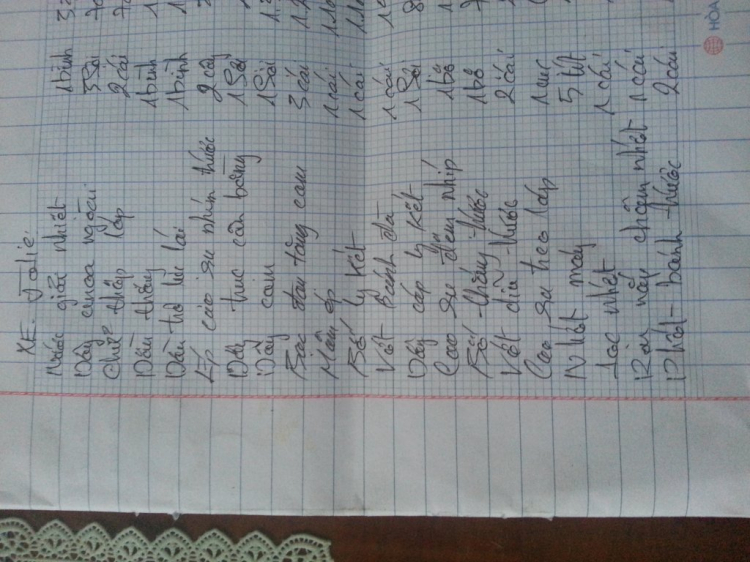 XE: Jolie.
Nước giải nhiệt 1 bình 3
Dây curoa ngoài 3 Sợi 70
Chiế thấp láp 2 cái 70
Dầu thắng 1 bình 1
Dầu trợ lực lái 1 bình 1
Ép cao su nhún trước 2 cây
Dây trục cân bằng 1 Sợi
Dây cam 1 Sợi
Bạc đạn tăng cam 3 cái
Mâm ép 1 cái
Bố ly kết 1 cái
Vòt Bánh đà 1 cái
Dây cáp ly kết 1 Sợi 8
Cao su đệm nhíp 1 bộ
Bố thắng trước 1 bộ
Vớt dĩa trước 2 cái
Cao su treo láp 1 cục
Nhớt máy 5 lít
Lọc nhớt 1 cái
Ron nắp chậm nhớt 1 cái
Phốt bánh trước 2 cái
HÒA